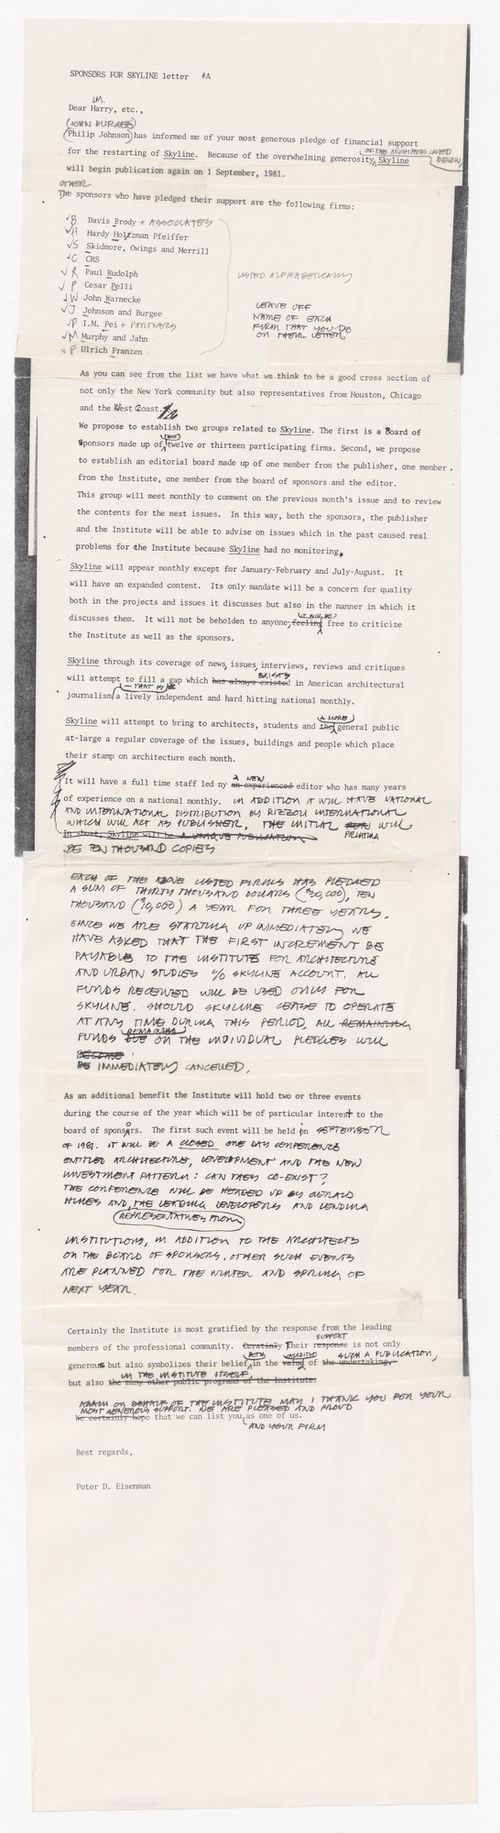 SPONSORS FOR SKYLINE letter #A
I.M.
Dear Harry, etc.,
(JOHN BURGEE)
(Philip Johnson) has informed me of your most generous pledge of financial support
OF THE ARCHITECTS LISTED BELOW
for the restarting of Skyline. Because of the overwhelming generosity, Skyline
will begin publication again on 1 September, 1981.
OTHER
The sponsors who have pledged their support are the following firms:
✓B Davis Brody + ASSOCIATES
✓H Hardy Holtzman Pfeiffer
✓S Skidmore, Owings and Merrill
✓C CRS
✓R Paul Rudolph
✓P Cesar Pelli
✓W John Warnecke
✓J Johnson and Burgee
✓P I.M. Pei + PARTNERS
✓M Murphy and Jahn
✓F Ulrich Franzen
LISTED ALPHABETICALLY
LEAVE OFF
NAME OF EACH
FIRM THAT YOU DO
ON THEIR LETTER
As you can see from the list we have what we think to be a good cross section of
not only the New York community but also representatives from Houston, Chicago
and the West Coast.
We propose to establish two groups related to Skyline. The first is a Board of
Sponsors made up of twelve or thirteen participating firms. Second, we propose
to establish an editorial board made up of one member from the publisher, one member
from the Institute, one member from the board of sponsors and the editor.
This group will meet monthly to comment on the previous month's issue and to review
the contents for the next issues. In this way, both the sponsors, the publisher
and the Institute will be able to advise on issues which in the past caused real
problems for the Institute because Skyline had no monitoring.
Skyline will appear monthly except for January-February and July-August. It
will have an expanded content. Its only mandate will be a concern for quality
both in the projects and issues it discusses but also in the manner in which it
IT WILL BE
discusses them. It will not be beholden to anyone; feeling free to criticize
the Institute as well as the sponsors.
Skyline through its coverage of news, issues, interviews, reviews and critiques
EXISTS
will attempt to fill a gap which has always existed in American architectural
— THAT IS
journalism a lively independent and hard hitting national monthly.
A MORE
Skyline will attempt to bring to architects, students and the general public
at-large a regular coverage of the issues, buildings and people which place
their stamp on architecture each month.
A NEW
It will have a full time staff led ny an experienced editor who has many years
of experience on a national monthly. IN ADDITION IT WILL HAVE NATIONAL
AND INTERNATIONAL DISTRIBUTION BY RIZZOLI INTERNATIONAL
WHICH WILL ACT AS PUBLISHER. THE INITIAL RUN WILL
PRINTING
In short, Skyline will be A UNIQUE PUBLICATION
BE TEN THOUSAND COPIES
EACH OF THE ABOVE LISTED FIRMS HAS PLEDGED
A SUM OF THIRTY THOUSAND DOLLARS ($30,000), TEN
THOUSAND (10,000) A YEAR FOR THREE YEARS.
SINCE WE ARE STARTING UP IMMEDIATELY WE
HAVE ASKED THAT THE FIRST INCREMENT BE
PAYABLE TO THE INSTITUTE FOR ARCHITECTURE
AND URBAN STUDIES c/o SKYLINE ACCOUNT. ALL
FUNDS RECEIVED WILL BE USED ONLY FOR
SKYLINE. SHOULD SKYLINE CEASE TO OPERATE
AT ANY TIME DURING THIS PERIOD, ALL REMAINING
REMAINING
FUNDS DUE ON THE INDIVIDUAL PLEDGES WILL
BECOME
BE IMMEDIATELY CANCELLED.
As an additional benefit the Institute will hold two or three events
during the course of the year which will be of particular interest to the
board of sponsors. The first such event will be held in SEPTEMBER
OF 1981. IT WILL BE A CLOSED ONE DAY CONFERENCE
ENTITLED ARCHITECTURE, DEVELOPMENT AND THE NEW
INVESTMENT PATTERN: CAN THEY CO-EXIST?
THE CONFERENCE WILL BE HEADED UP BY GERALD
HINES AND THE LEADING DEVELOPERS AND LENDING
REPRESENTATIVES FROM
INSTITUTIONS, IN ADDITION TO THE ARCHITECTS
ON THE BOARD OF SPONSORS. OTHER SUCH EVENTS
ARE PLANNED FOR THE WINTER AND SPRING OF
NEXT YEAR.
Certainly the Institute is most gratified by the response from the leading
SUPPORT
members of the professional community. Ceratinly Their response is not only
BOTH SUCH A PUBLICATION,
generous but also symbolizes their belief in the value of the undertaking,
IN THE INSTITUTE ITSELF.
but also the many other public programs of the Institute.
AGAIN ON BEHALF OF THE INSTITUTE MAY I THANK YOU FOR YOUR
MOST GENEROUS SUPPORT. WE ARE PLEASED AND PROUD
We certainly hope that we can list you as one of us.
AND YOUR FIRM
Best regards,
Peter D. Eisenman